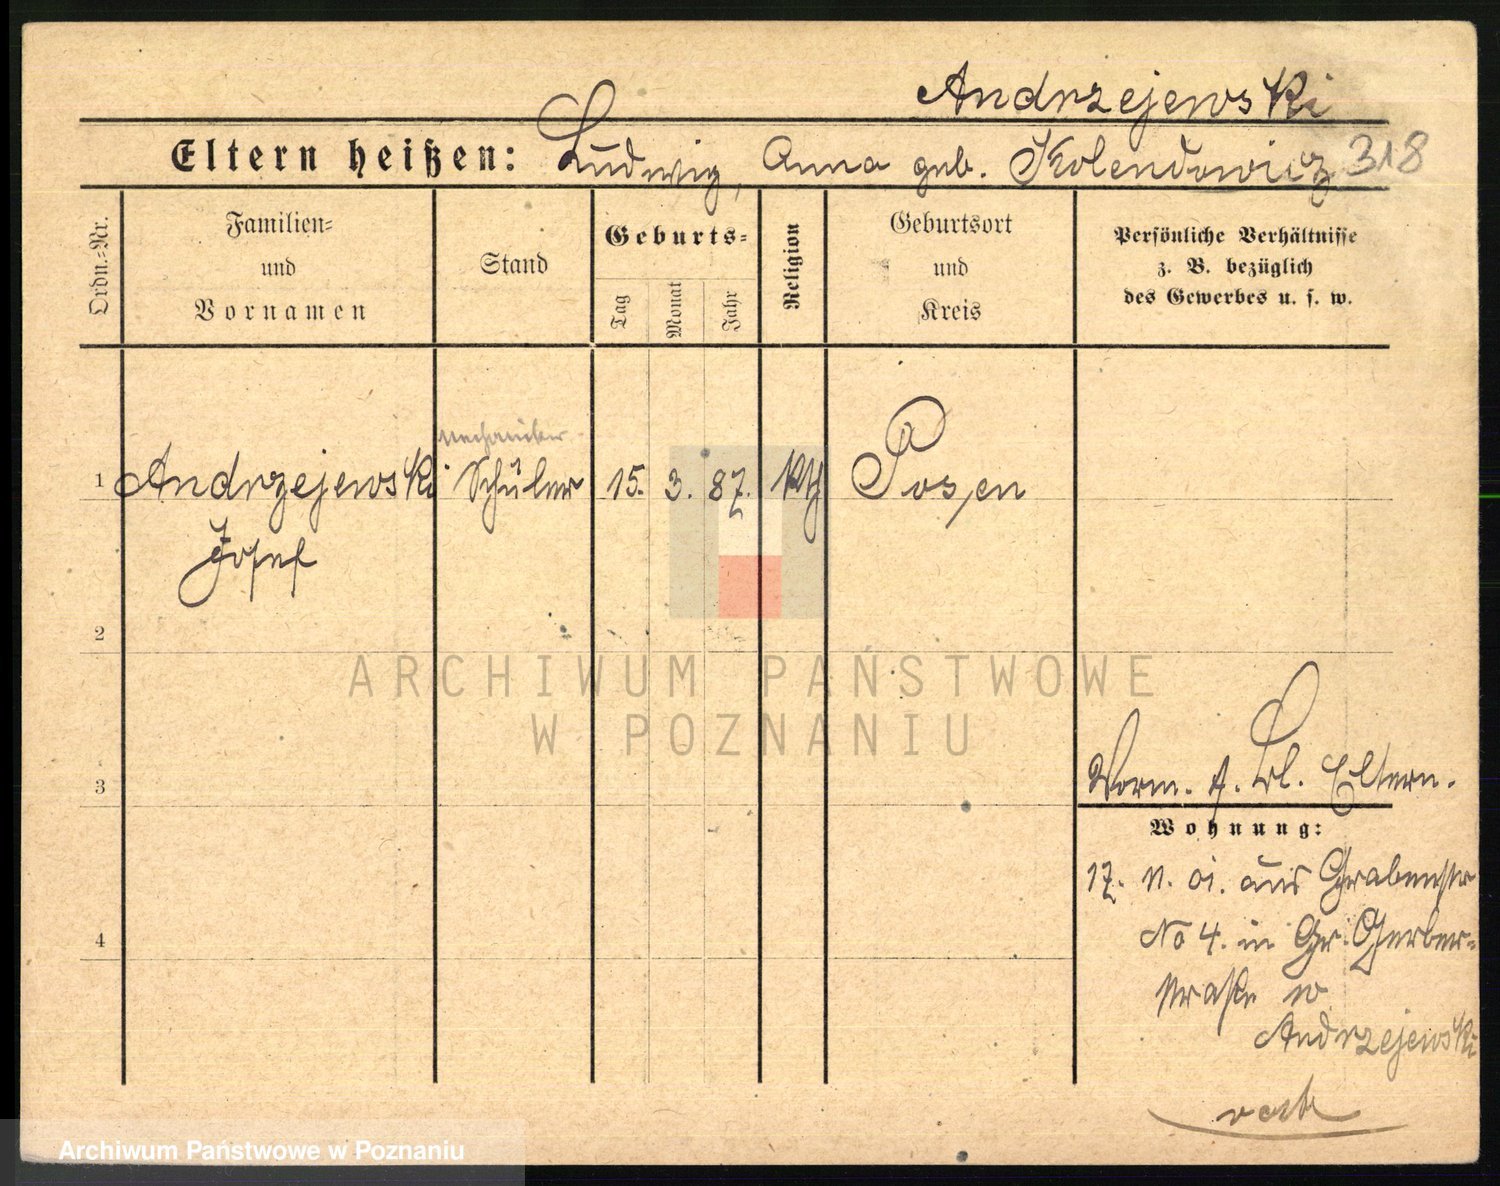 Andrzejewski
Eltern heißen: Ludwig, Anna geb. Kolendowicz 318
Ordn.-Nr.
Familien-
und
Vornamen
Stand
Geburts-
Tag
Monat
Jahr
Religion
Geburtsort
und
Kreis
Persönliche Verhältnisse
z. B. bezüglich
des Gewerbes u. s. w.
Mechaniker
1 Andrzejewski Schüler 15. 3. 87. kth Posen
Josef
2
ARCHIWUM PAŃSTWOWE
W POZNANIU
3
Eltern.
Wohnung:
17. aus Grabenstr
No 4. in Gr. Gerber-
4
straße
Andrzejewski
Archiwum Państwowe w Poznaniu